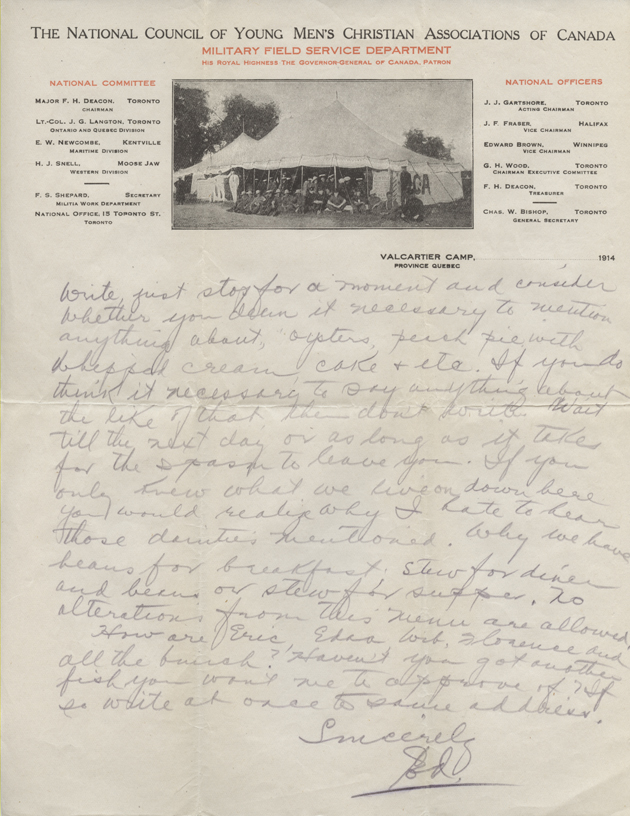 THE NATIONAL COUNCIL OF YOUNG MEN'S CHRISTIAN ASSOCIATIONS OF CANADA
MILITARY FIELD SERVICE DEPARTMENT
HIS ROYAL HIGHNESS THE GOVERNOR-GENERAL OF CANADA, PATRON
NATIONAL COMMITTEE
MAJOR F. H. DEACON, TORONTO
CHAIRMAN
LT.-COL. J. G. LANGTON, TORONTO
ONTARIO AND QUEBEC DIVISION
E. W. NEWCOMBE, KENTVILLE
MARITIME DIVISION
H. J. SNELL, MOOSE JAW
WESTERN DIVISION
F. S. SHEPARD, SECRETARY
MILITIA WORK DEPARTMENT
NATIONAL OFFICE, 15 TORONTO ST.
TORONTO
NATIONAL OFFICERS
J. J. GARTSHORE, TORONTO
ACTING CHAIRMAN
J. F. FRASER, HALIFAX
VICE CHAIRMAN
EDWARD BROWN, WINNIPEG
VICE CHAIRMAN
G. H. WOOD, TORONTO
CHAIRMAN EXECUTIVE COMMITTEE
F. H. DEACON, TORONTO
TREASURER
CHAS. W. BISHOP, TORONTO
GENERAL SECRETARY
VALCARTIER CAMP, 1914
PROVINCE QUEBEC
Write, just stop for a moment and consider
whether you deem it necessary to mention
anything about, oysters, peach pie with
whipped cream, cake + etc. If you do
think it necessary to say anything about
the like of that then don't write. Wait
till the next day or as long as it takes
for the spasm to leave you. If you
only knew what we live on down here
you would realize why I hate to hear
those dainties mentioned. Why we have
beans for breakfast. stew for diner
and beans or stew for supper. No
alterations from this menu are allowed.
How are Eric, Edna Florence and
all the bunch? Haven't you got another
fish you want me to approve of? If
so write at once to same address.
Sincerely
Ed.